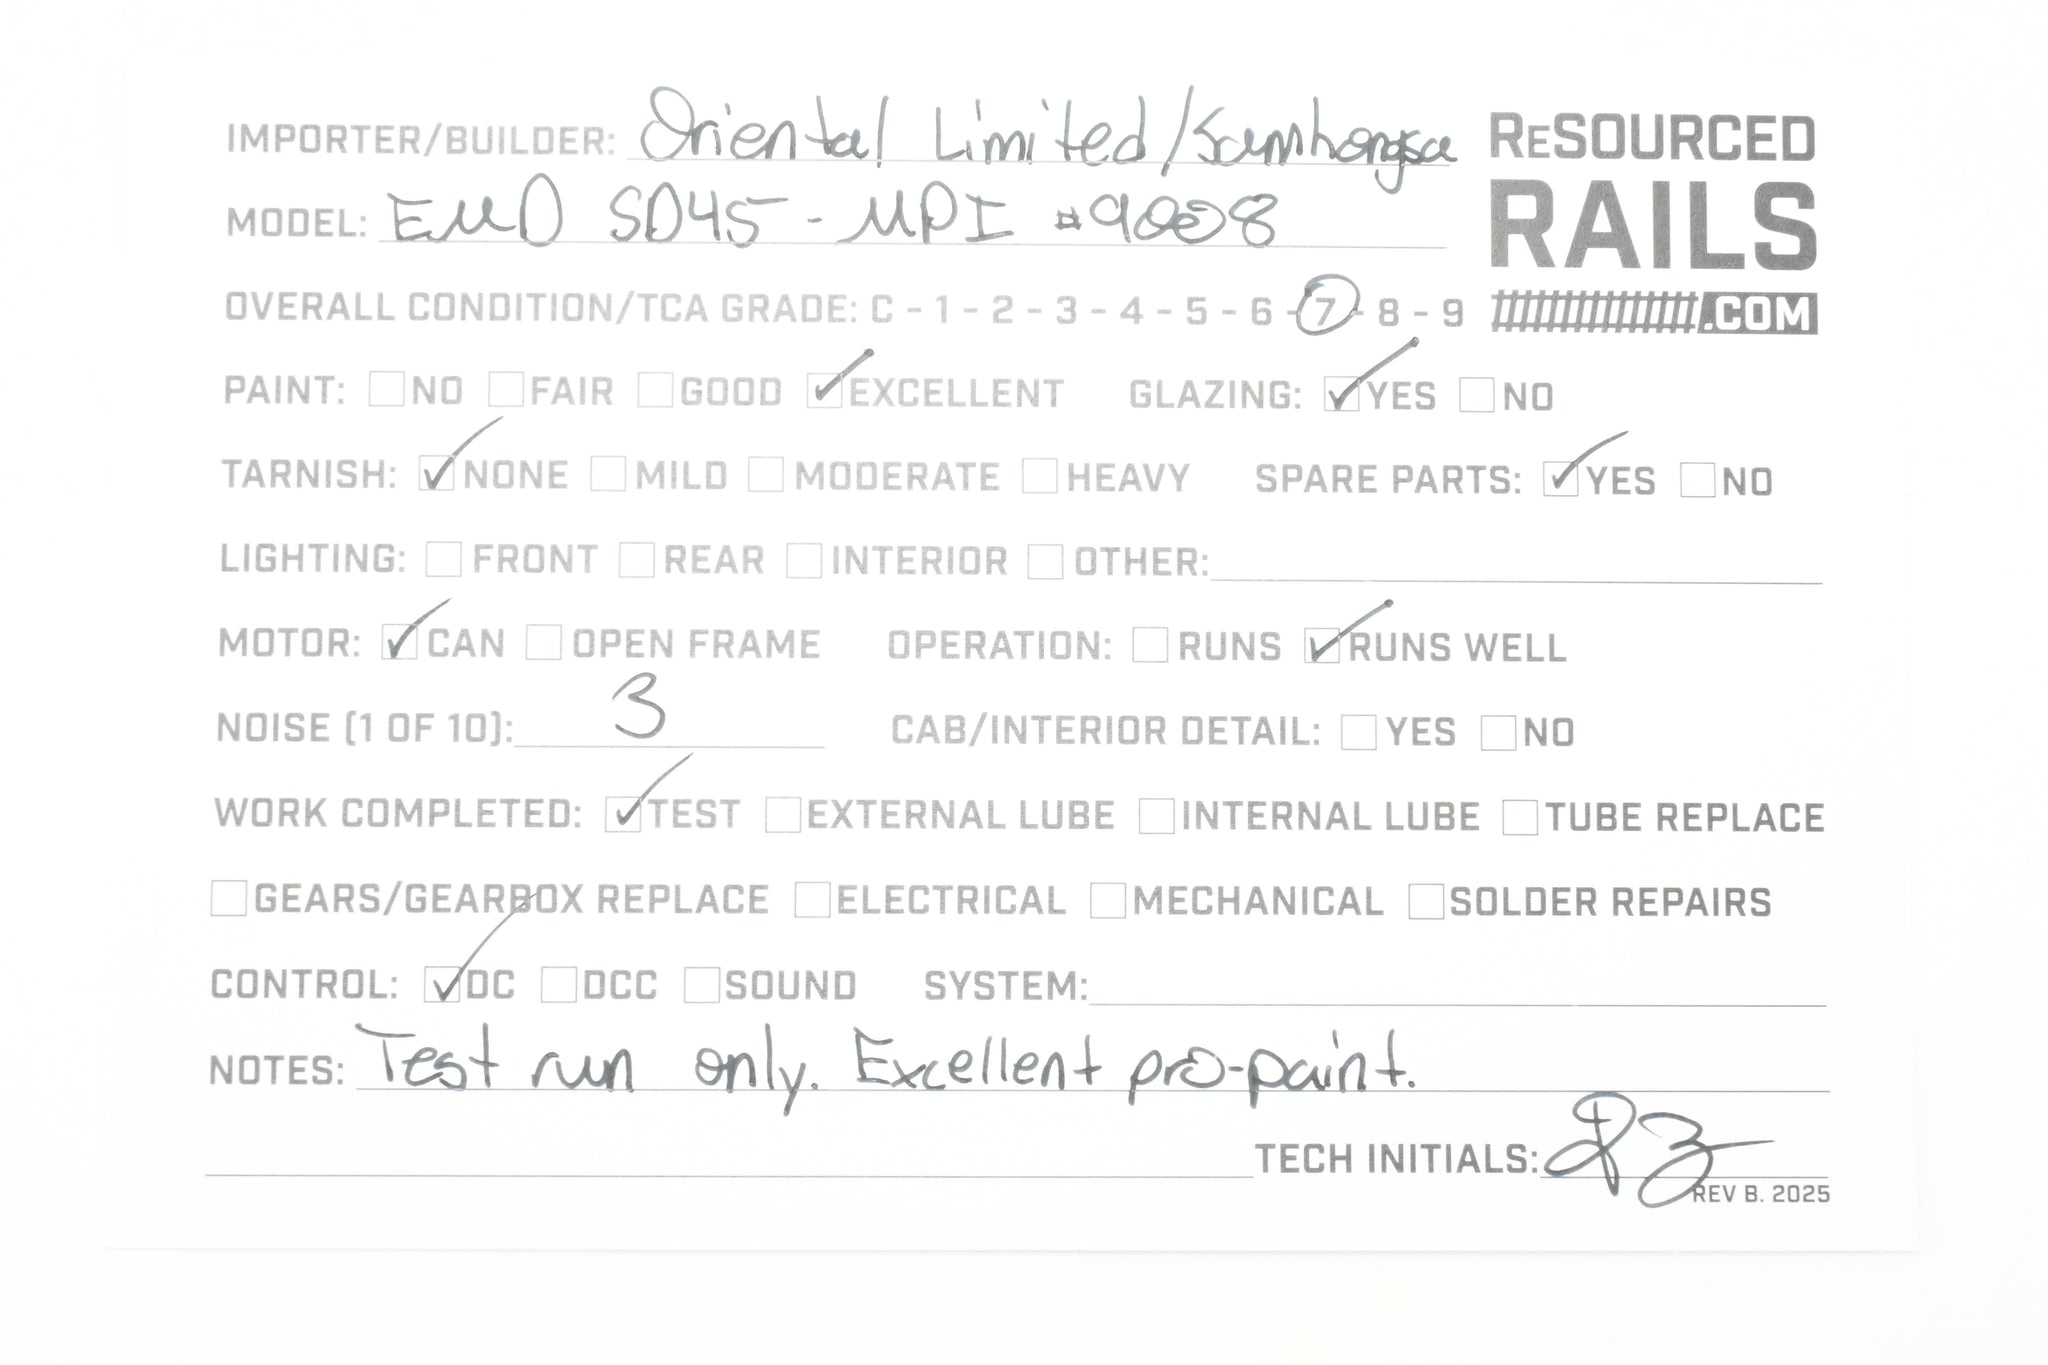 IMPORTER/BUILDER: Oriental Limited/Samhongsa
ReSOURCED
RAILS
.COM
MODEL: EMD SD45 - MPI #9008
OVERALL CONDITION/TCA GRADE: C - 1 - 2 - 3 - 4 - 5 - 6 - 7 - 8 - 9
PAINT: NO FAIR GOOD EXCELLENT GLAZING: YES NO
TARNISH: NONE MILD MODERATE HEAVY SPARE PARTS: YES NO
LIGHTING: FRONT REAR INTERIOR OTHER:
MOTOR: CAN OPEN FRAME OPERATION: RUNS RUNS WELL
NOISE (1 OF 10): 3 CAB/INTERIOR DETAIL: YES NO
WORK COMPLETED: TEST EXTERNAL LUBE INTERNAL LUBE TUBE REPLACE
GEARS/GEARBOX REPLACE ELECTRICAL MECHANICAL SOLDER REPAIRS
CONTROL: DC DCC SOUND SYSTEM:
NOTES: Test run only. Excellent pro-paint.
TECH INITIALS:
REV B. 2025